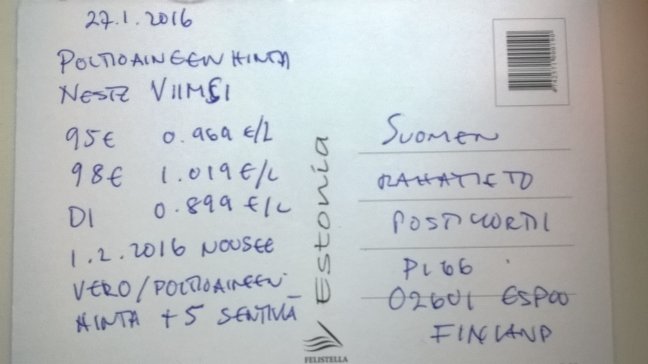 27.1.2016
POLTTOAINEEN HINTA
NESTE VIIMSI
95E 0.969 €/L
98E 1.019 €/L
DI 0.899 €/L
1.2.2016 NOUSEE
VERO/POLTTOAINEEN
HINTA +5 SENTTIÄ
Estonia
FELISTELLA
SUOMEN
RAHATIETO
POSTIKORTTI
PL 66
02601 ESPOO
FINLAND